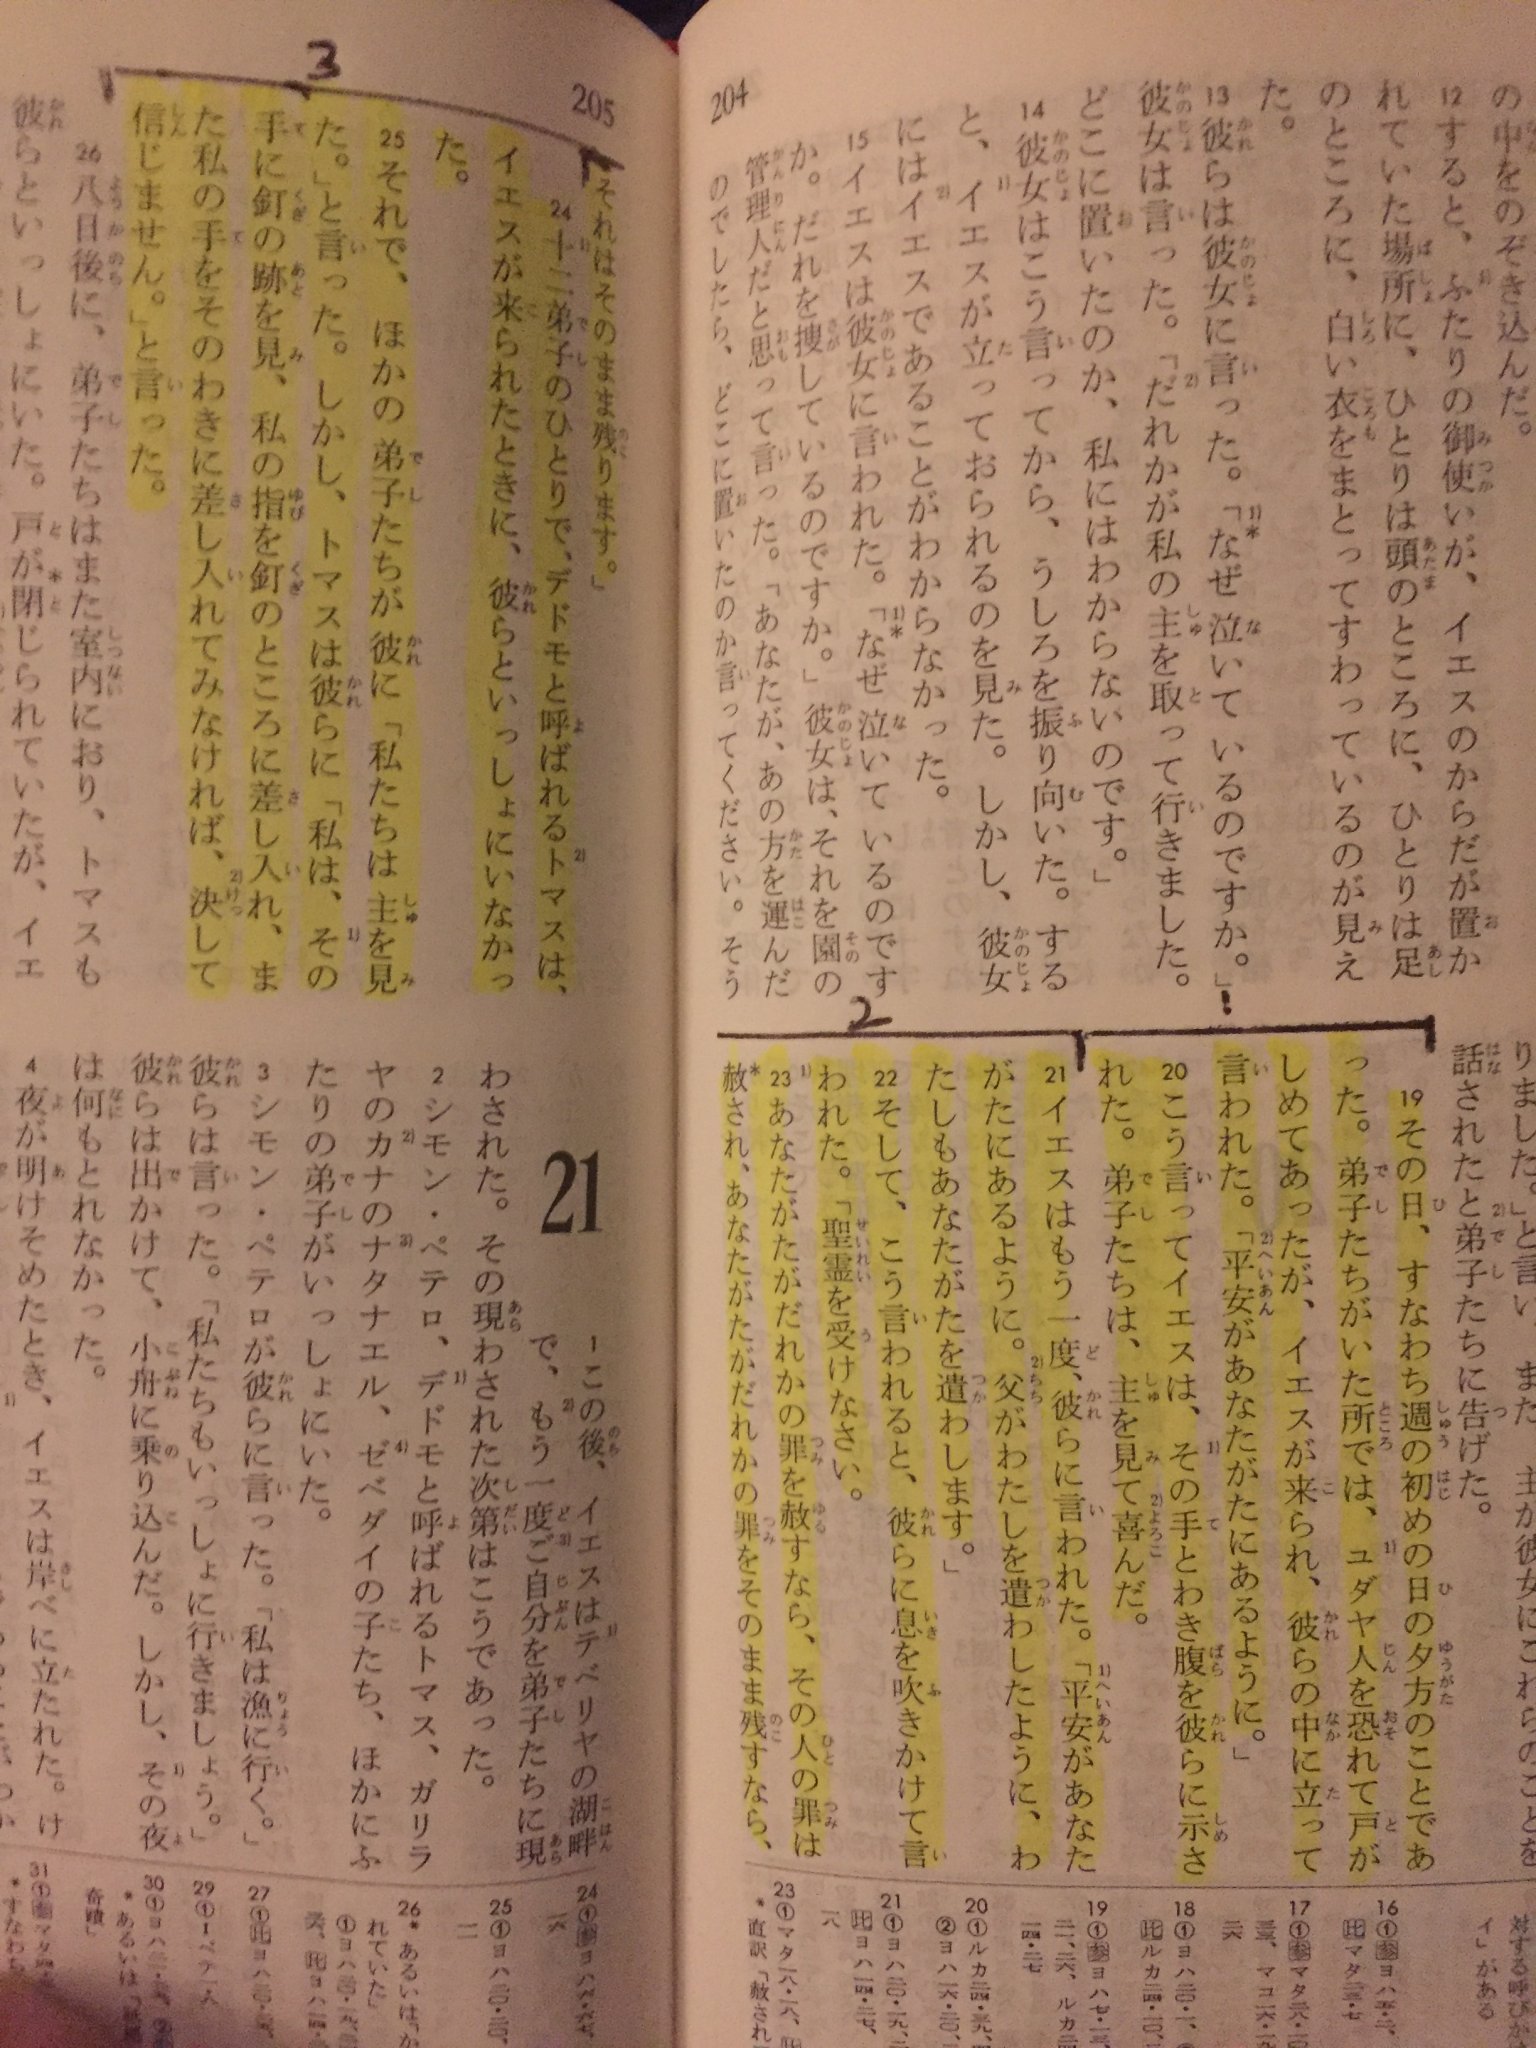 204
の中をのぞき込んだ。
12 すると、ふたりの御使いが、イエスのからだが置か
れていた場所に、ひとりは頭のところに、ひとりは足
のところに、白い衣をまとってすわっているのが見え
た。
13 彼らは彼女に言った。「なぜ泣いているのですか。」
彼女は言った。「だれかが私の主を取って行きました。
どこに置いたのか、私にはわからないのです。」
14 彼女はこう言ってから、うしろを振り向いた。する
と、イエスが立っておられるのを見た。しかし、彼女
にはイエスであることがわからなかった。
15 イエスは彼女に言われた。「なぜ泣いているのです
か。だれを捜しているのですか。」彼女は、それを園の
管理人だと思って言った。「あなたが、あの方を運んだ
のでしたら、どこに置いたのか言ってください。そう
りました。」と言い、また、主が彼女にこれらのことを
話されたと弟子たちに告げた。
1
19 その日、すなわち週の初めの日の夕方のことであ
った。弟子たちがいた所では、ユダヤ人を恐れて戸が
しめてあったが、イエスが来られ、彼らの中に立って
言われた。「平安があなたがたにあるように。」
20 こう言ってイエスは、その手とわき腹を彼らに示さ
れた。弟子たちは、主を見て喜んだ。
2
21 イエスはもう一度、彼らに言われた。「平安があなた
がたにあるように。父がわたしを遣わしたように、わ
たしもあなたがたを遣わします。」
22 そして、こう言われると、彼らに息を吹きかけて言
われた。「聖霊を受けなさい。
23 あなたがたがだれかの罪を赦すなら、その人の罪は
赦され、あなたがたがだれかの罪をそのまま残すなら、
205
3
それはそのまま残ります。」
24 十二弟子のひとりで、デドモと呼ばれるトマスは、
イエスが来られたときに、彼らといっしょにいなかっ
た。
25 それで、ほかの弟子たちが彼に「私たちは主を見
た。」と言った。しかし、トマスは彼らに「私は、その
手に釘の跡を見、私の指を釘のところに差し入れ、ま
た私の手をそのわきに差し入れてみなければ、決して
信じません。」と言った。
26 八日後に、弟子たちはまた室内におり、トマスも
彼らといっしょにいた。戸が閉じられていたが、イエ
21
1 この後、イエスはテベリヤの湖畔
で、もう一度ご自分を弟子たちに現
わされた。その現わされた次第はこうであった。
2 シモン・ペテロ、デドモと呼ばれるトマス、ガリラ
ヤのカナのナタナエル、ゼベダイの子たち、ほかにふ
たりの弟子がいっしょにいた。
3 シモン・ペテロが彼らに言った。「私は漁に行く。」
彼らは言った。「私たちもいっしょに行きましょう。」
彼らは出かけて、小舟に乗り込んだ。しかし、その夜
は何もとれなかった。
4 夜が明けそめたとき、イエスは岸べに立たれた。け